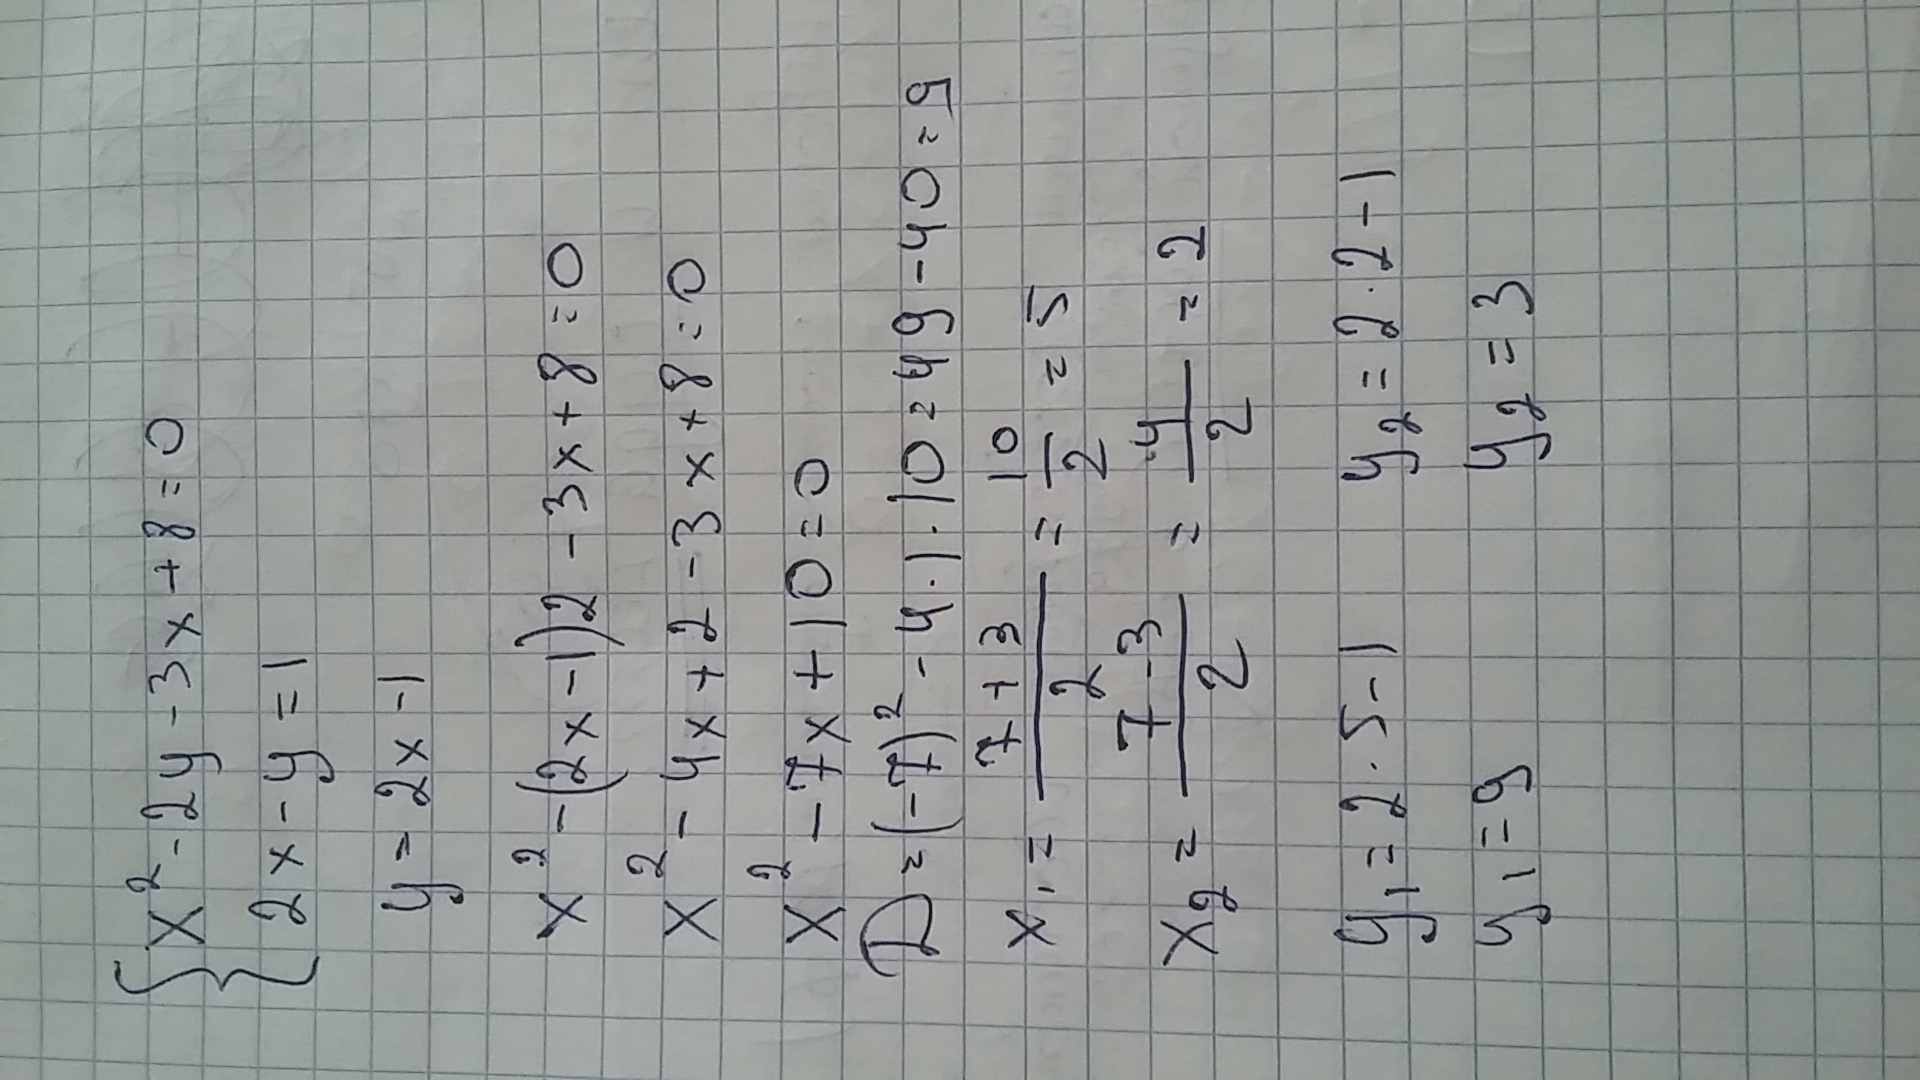 {x² - 2y - 3x + 8 = 0
{2x - y = 1
y = 2x - 1
x² - (2x - 1)2 - 3x + 8 = 0
x² - 4x + 2 - 3x + 8 = 0
x² - 7x + 10 = 0
D = (-7)² - 4 · 1 · 10 = 49 - 40 = 9
x₁ = (7 + 3)/2 = 10/2 = 5
x₂ = (7 - 3)/2 = 4/2 = 2
y₁ = 2 · 5 - 1 y₂ = 2 · 2 - 1
y₁ = 9 y₂ = 3